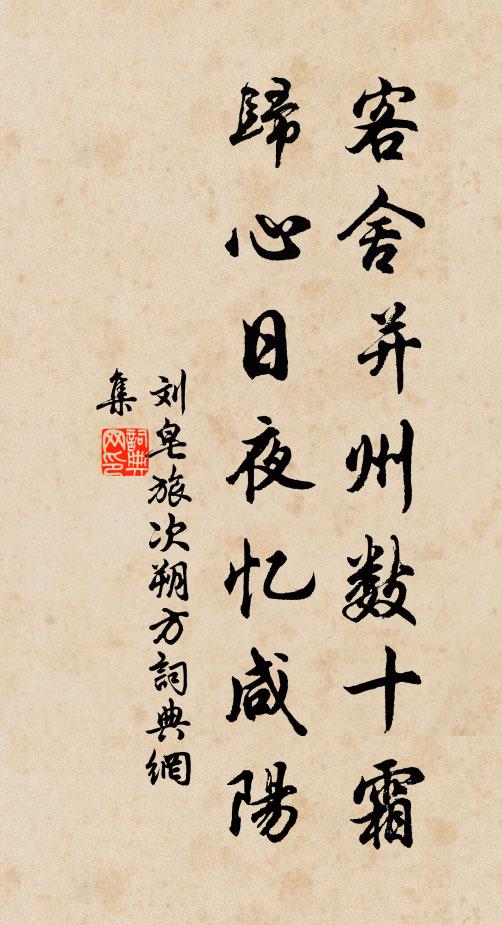 客舍并州数十霜
歸心日夜忆咸陽
刘皂旅次朔方詞典網
集
詞典网印